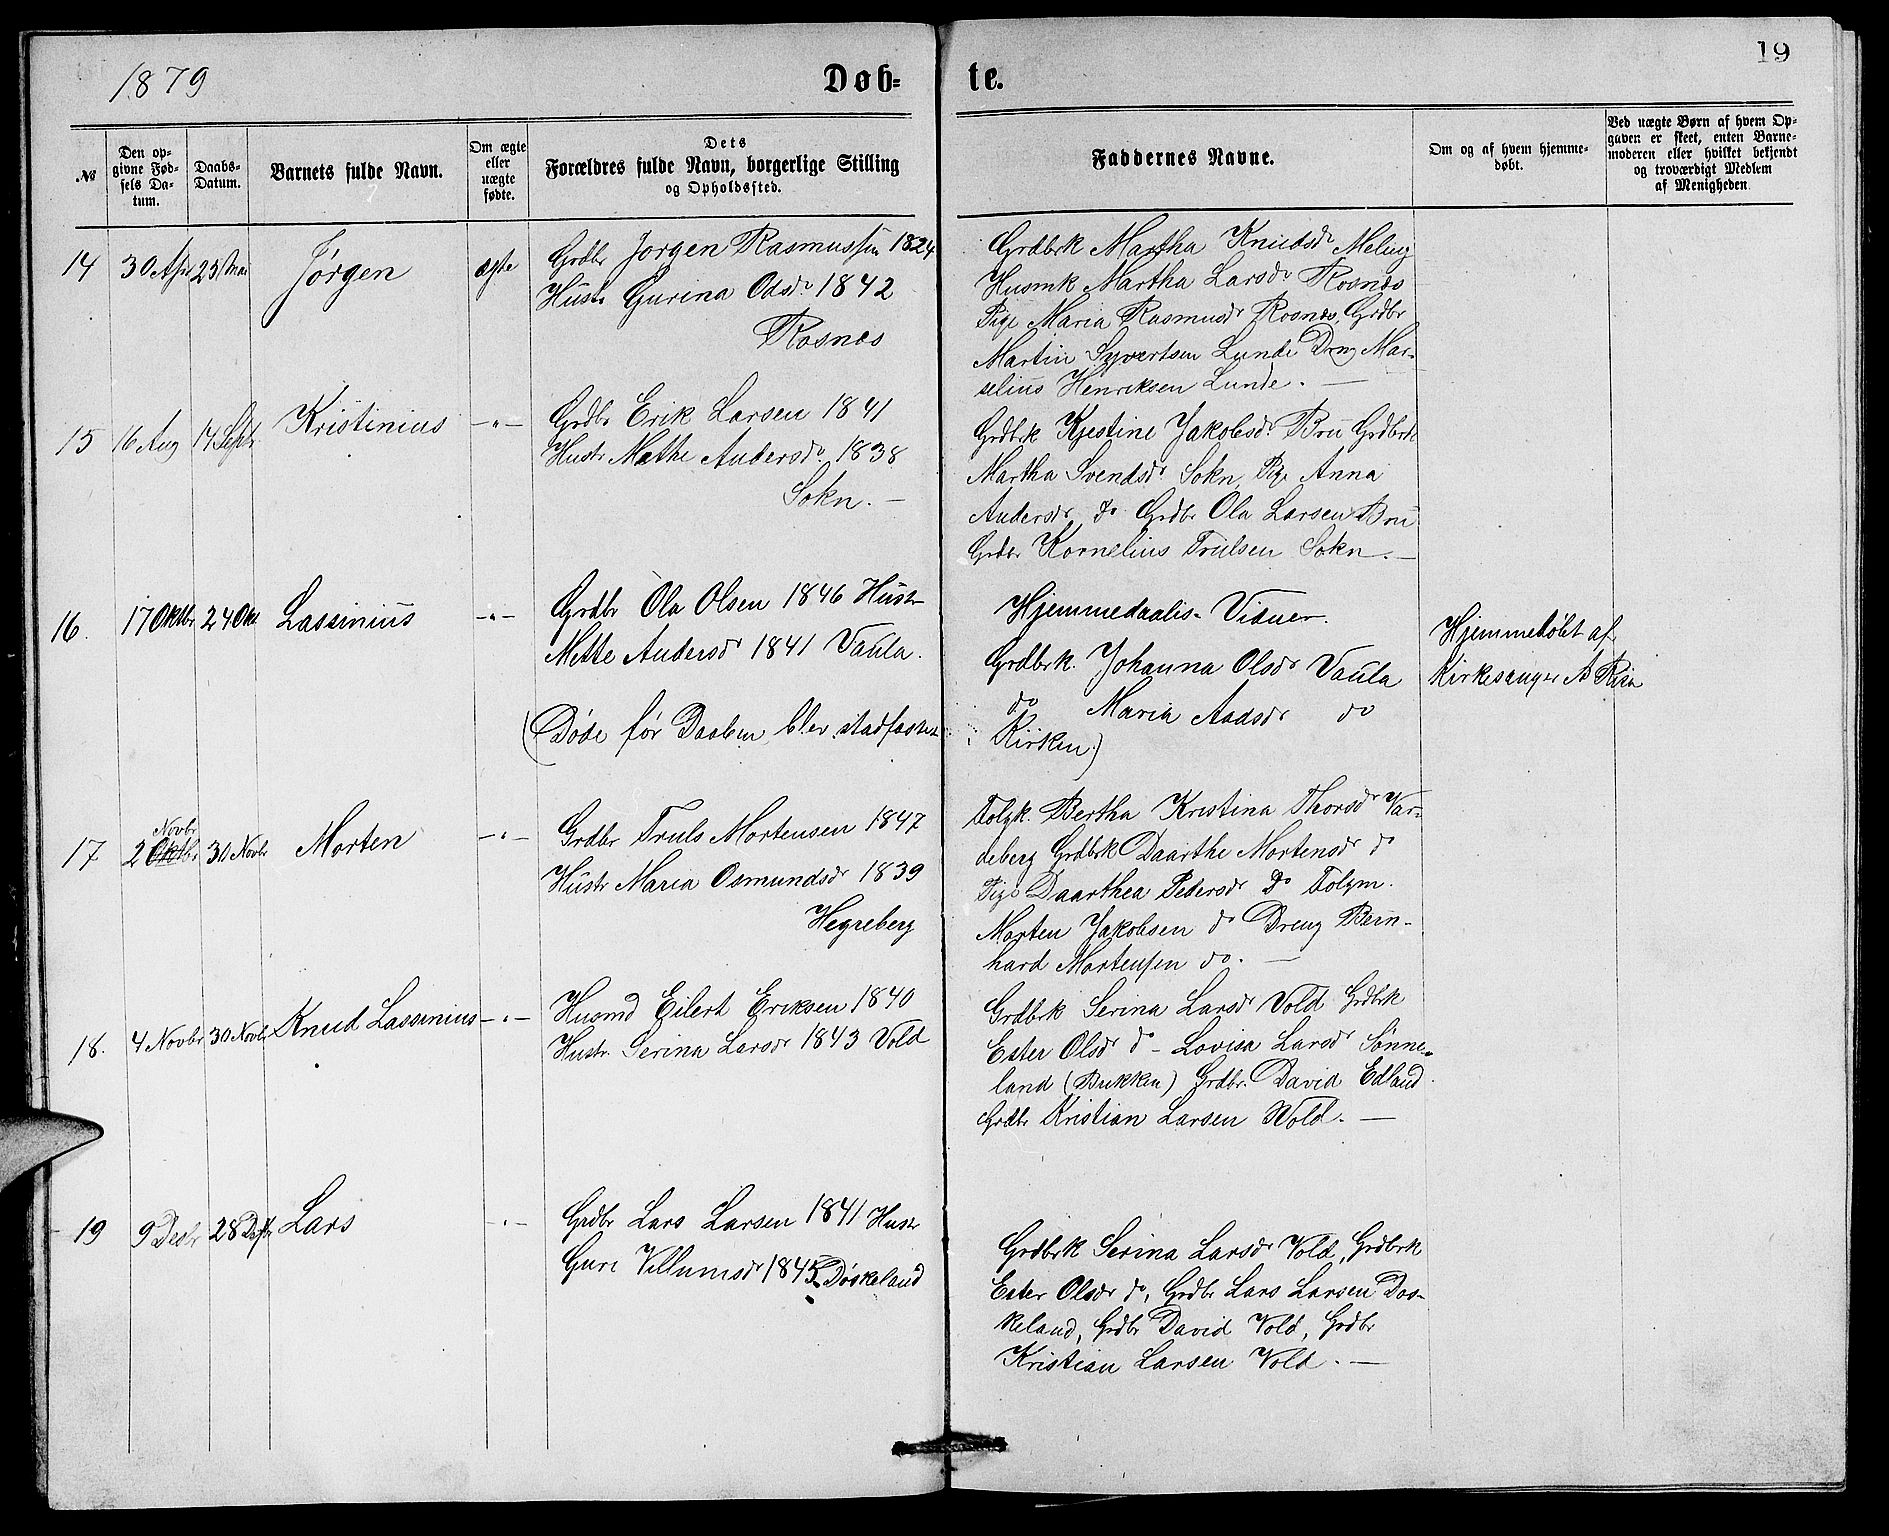 1879
Døb-
te.
19
№
Den op-
givne Fød-
sels Da-
tum.
Daabs-
Datum.
Barnets fulde Navn.
Om ægte
eller
uægte
fødte.
Dets
Forældres fulde Navn, borgerlige Stilling
og Opholdssted.
Faddernes Navne.
Om og af hvem hjemme-
døbt.
Ved uægte Børn af hvem Op-
gaven er skeet, enten Barne-
moderen eller hvilket bekjendt
og troværdigt Medlem
af Menigheden
14 30 Apr 23 Mai Jørgen ægte
Grdbr Jørgen Rasmussen 1824
Hustr Gurina Odsdr 1842
Rosnes
Grdbrk Martha Knudsdr Meling
Husmk Martha Larsdr Rosnes
Pige Maria Rasmusdr Rosnes, Grdbr
Martin Syvertsen Lunde Dreng Mar-
selius Henriksen Lunde. —
15 16 Aug 14 Septr Kristinius —"—
Grdbr Erik Larsen 1841
Hustr Methe Andersdr. 1838
Sokn. —
Grdbrk Kjestine Jakobsdr. Bru Grdbrk
Martha Svendsdr Sokn, Pge Anna
Andersdr do Grdbr Ola Larsen Bru
Grdbr Kornelius Trulsen Sokn. —
16. 17 Oktbr. 24 Okt Lassinius —"—
Grdbr Ola Olsen 1846 Hustr
Mette Andersdr 1841 Vaula.
(Døde før Daaben blev stadfæstet
Hjemmedaabs-Vidner.
Grdbrk. Johanna Olsdr Vaula
do Maria Aadsdr do
Kirken)
Hjemmedøbt af
Kirkesanger A
17 2 Oktbr Novbr 30 Novbr Morten —"—
Grdbr Truls Mortensen 1847
Hustr Maria Osmundsdr 1839
Hegreberg
Folgk. Bertha Kristina Thorsdr Var-
deberg Grdbrk Daarthe Mortensdr do
Pige Daarthea Pedersdr Do Folgm.
Morten Jakobsen do Dreng Bern-
hard Mortensen do. —
18. 4 Novbr 30 Novbr Knud Lassinius —"—
Husmd Eilert Eriksen 1840
Hustr. Serina Larsdr 1843 Vold
Grdbrk Serina Larsdr Vold Grdbrk
Ester Olsdr do - Lovisa Larsdr Sønne-
land (Bukken) Grdbr. David Edland.
Grdbr Kristian Larsen Wold. —
19 9 Decbr 28 Decbr Lars —"—
Grdbr Lars Larsen 1841 Hustr
Guri Villumsdr 1845 Døskeland
Grdbrk Serina Larsdr Vold, Grdbrk
Ester Olsdr do, Grdbr Lars Larsen Dos-
keland, Grdbr David Vold, Grdbr
Kristian Larsen Vold. —